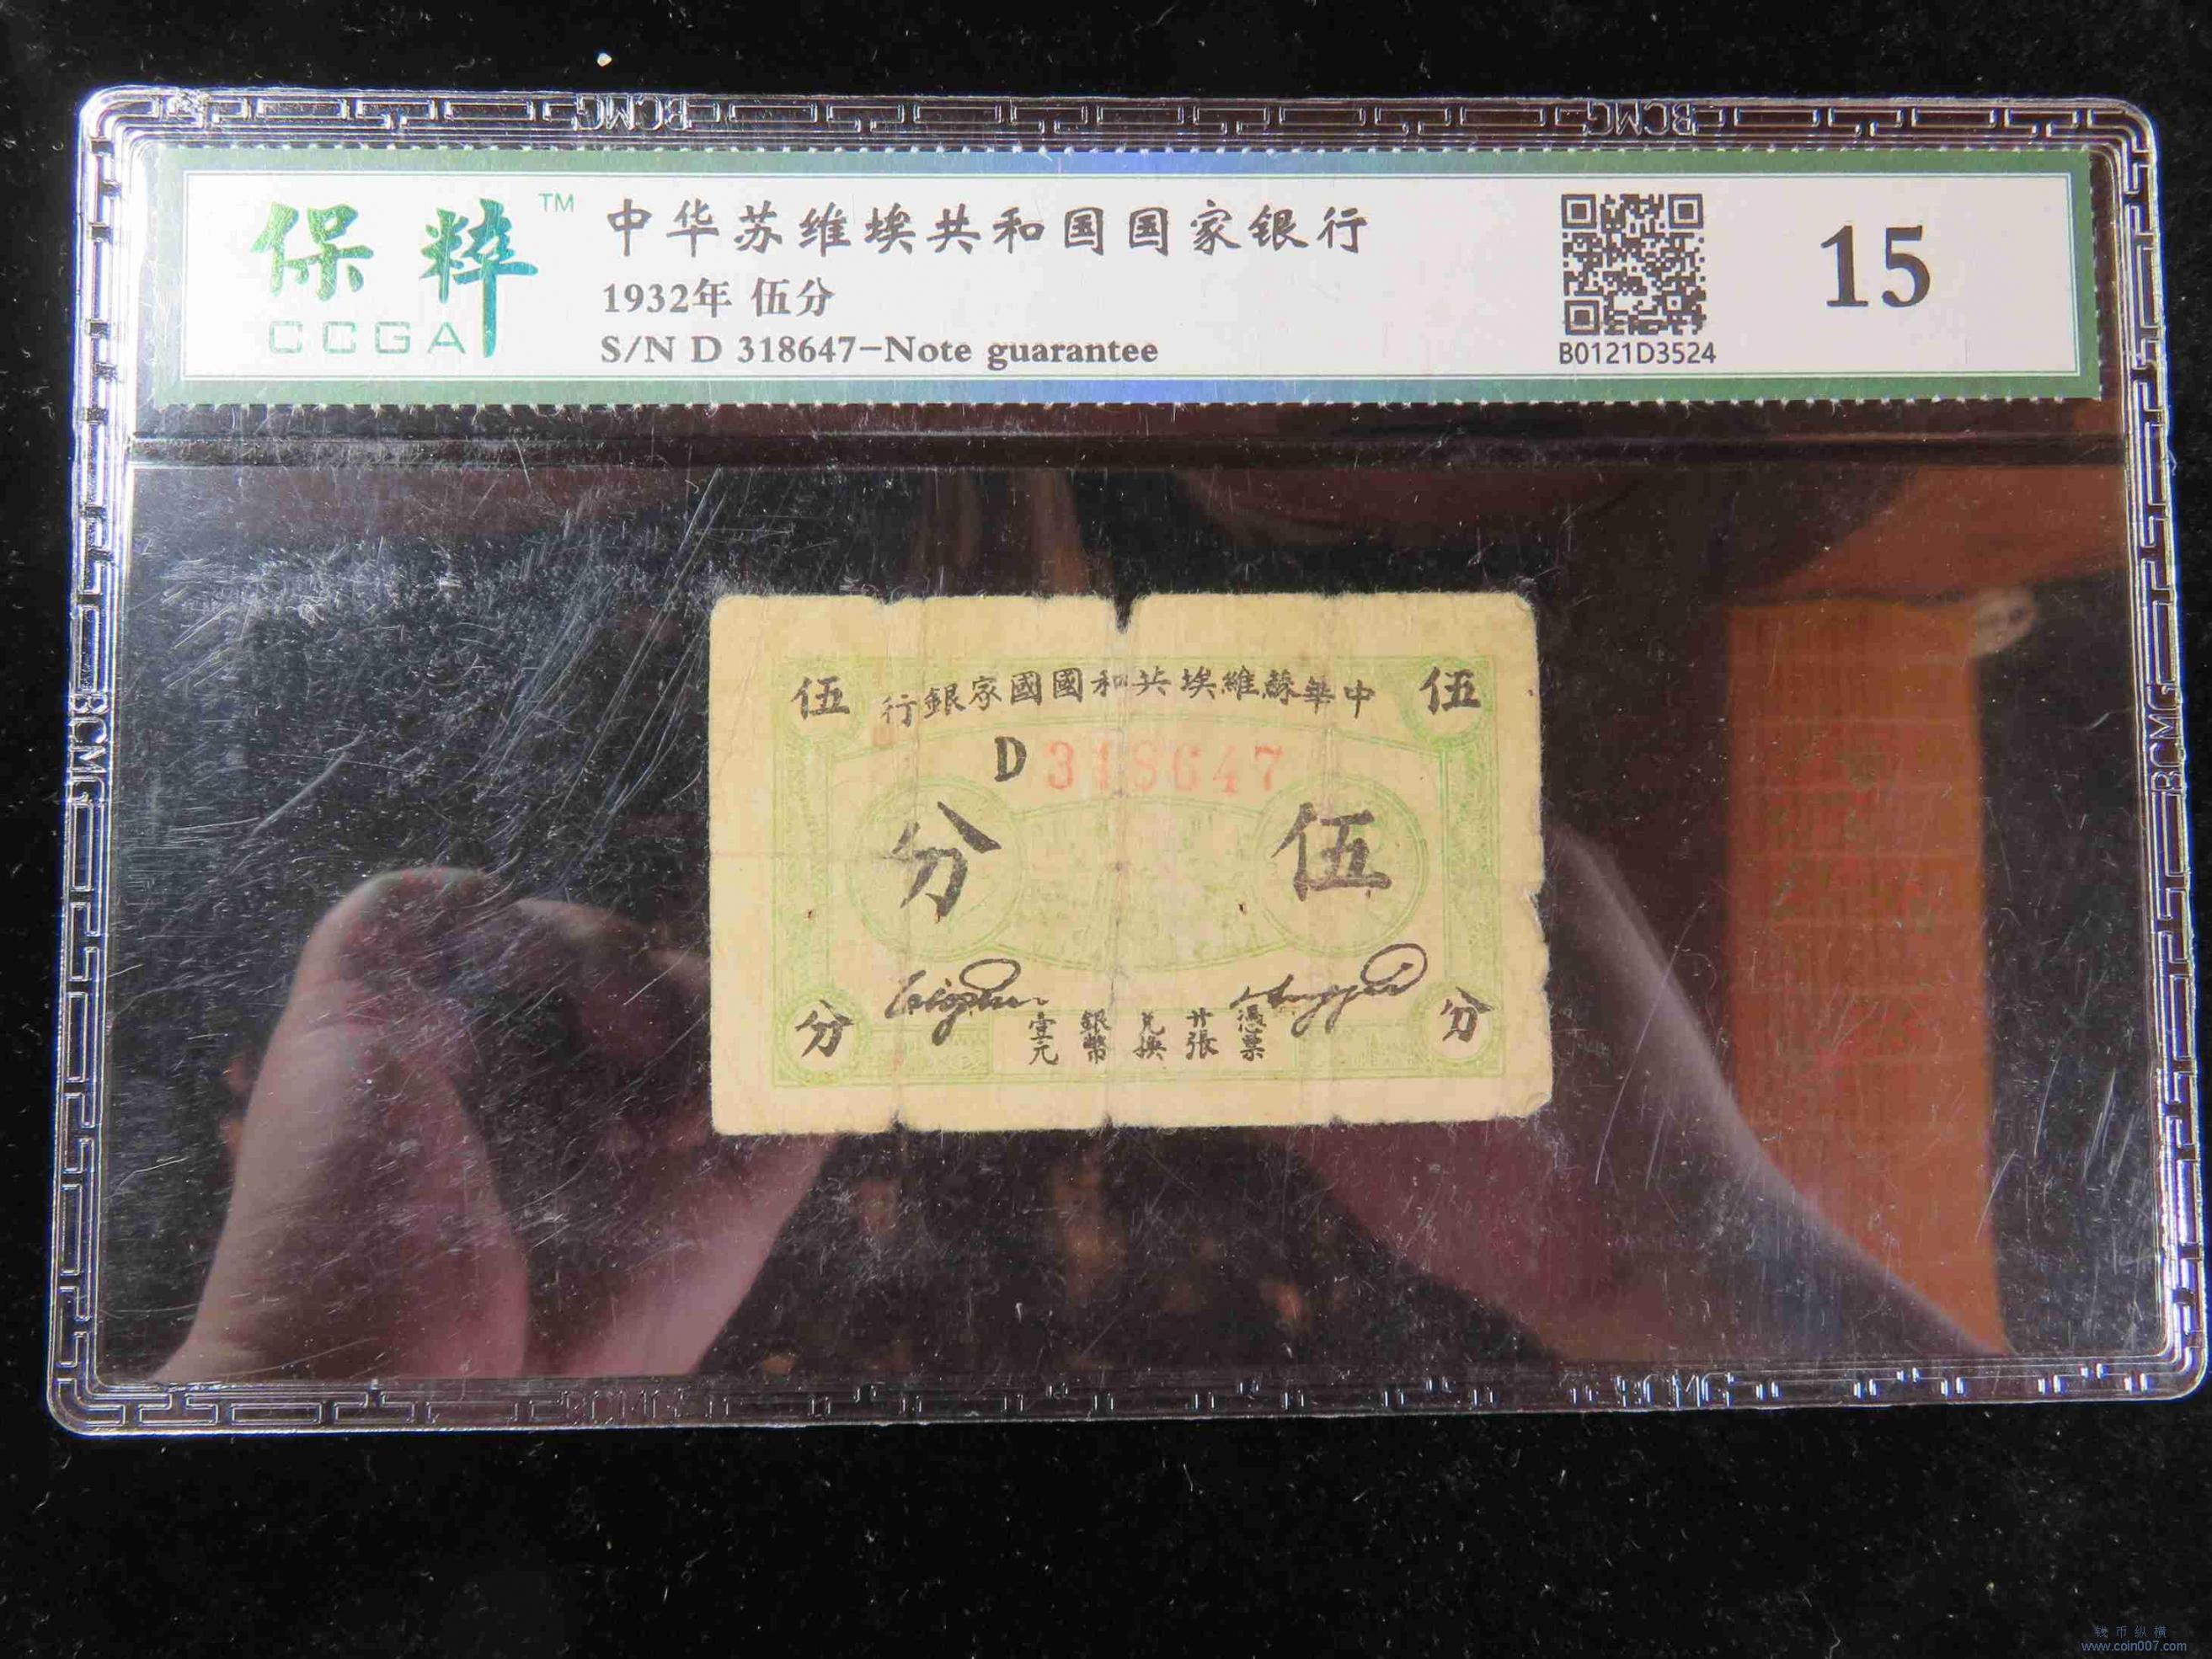 BCMG BCMG
保粹™
CCGA
中华苏维埃共和国国家银行
1932年 伍分
S/N D 318647-Note guarantee
B0121D3524
15
伍 行銀家國國和共埃維蘇華中 伍
D 318647
分 伍
分 壹元 銀幣 兌換 廿張 憑票 分
BCMG
BCMG
BCMG BCMG
钱币纵横
www.coin007.com